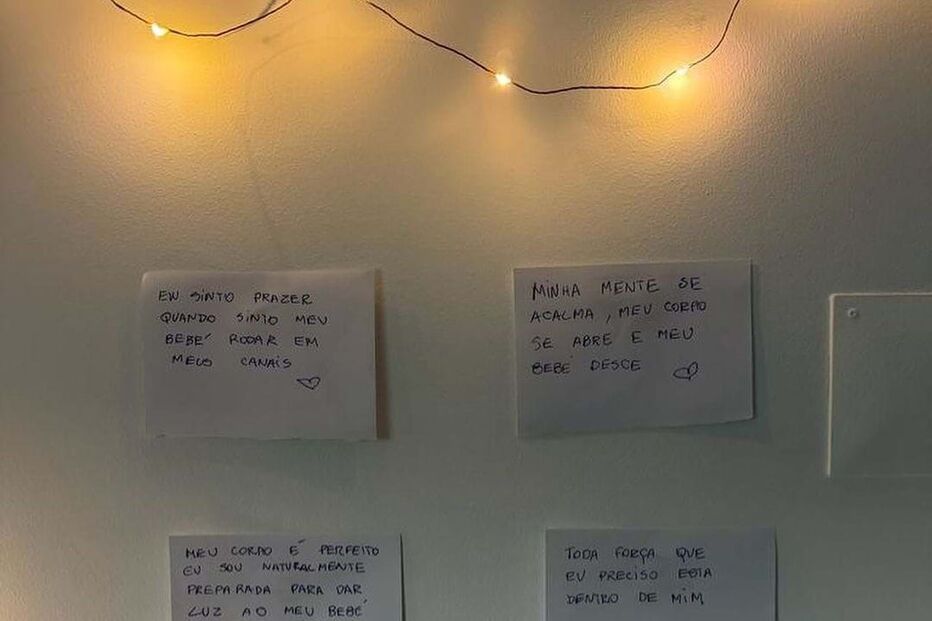 EU SINTO PRAZER
QUANDO SINTO MEU
BEBÉ RODAR EM
MEUS CANAIS
MINHA MENTE SE
ACALMA, MEU CORPO
SE ABRE E MEU
BEBÉ DESCE
MEU CORPO É PERFEITO
EU SOU NATURALMENTE
PREPARADA PARA DAR
LUZ AO MEU BEBÉ
TODA FORÇA QUE
EU PRECISO ESTA
DENTRO DE MIM